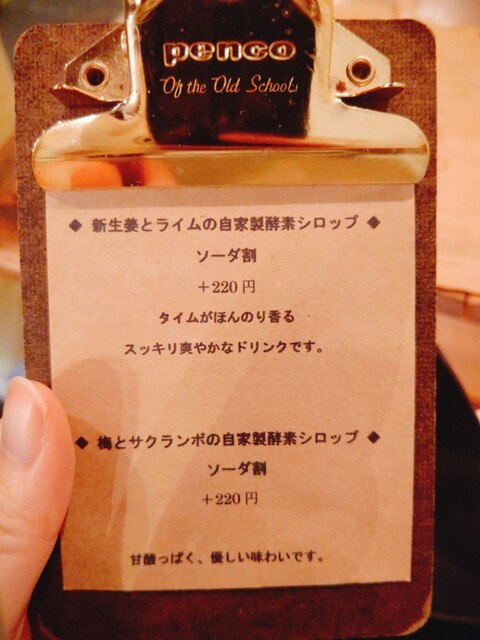 penco
Of the Old School
◆ 新生姜とライムの自家製酵素シロップ ◆
ソーダ割
＋220 円
タイムがほんのり香る
スッキリ爽やかなドリンクです。
◆ 梅とサクランボの自家製酵素シロップ ◆
ソーダ割
＋220 円
甘酸っぱく、優しい味わいです。